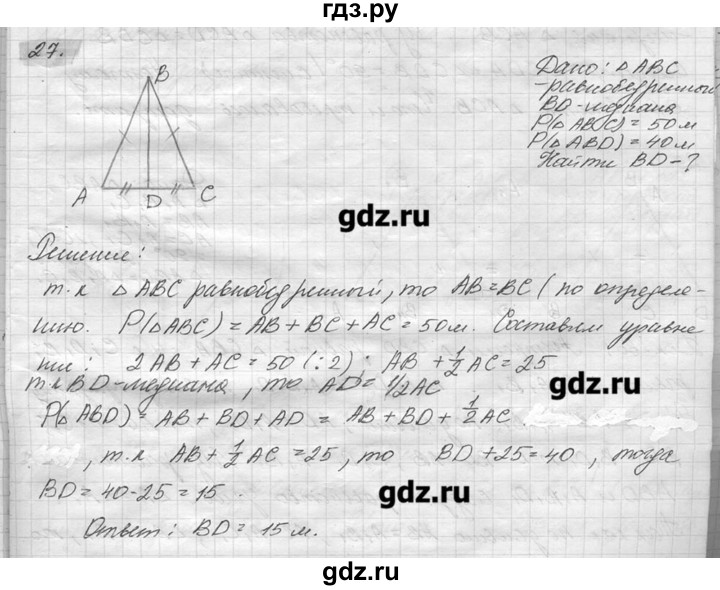 гдз.ру
27.
B
A
D
C
Дано: △ABC
-равнобедренный
BD-медиана
P(△ABC) = 50 м
P(△ABD) = 40 м
Найти BD-?
gdz.ru
Решение:
т.к △ ABC равнобедренный, то AB=BC (по определе-
нию. P(△ABC) = AB + BC + AC = 50 м. Составим уравне
ние: 2AB + AC = 50 (:2); AB + 1/2 AC = 25
gdz.ru
т.к BD-медиана, то AD= 1/2 AC
P(△ ABD) = AB + BD + AD = AB + BD + 1/2 AC
, т.к AB + 1/2 AC = 25, то BD + 25 = 40, тогда
BD = 40-25 = 15.
gdz.ru
Ответ: BD = 15 м.
gdz.ru